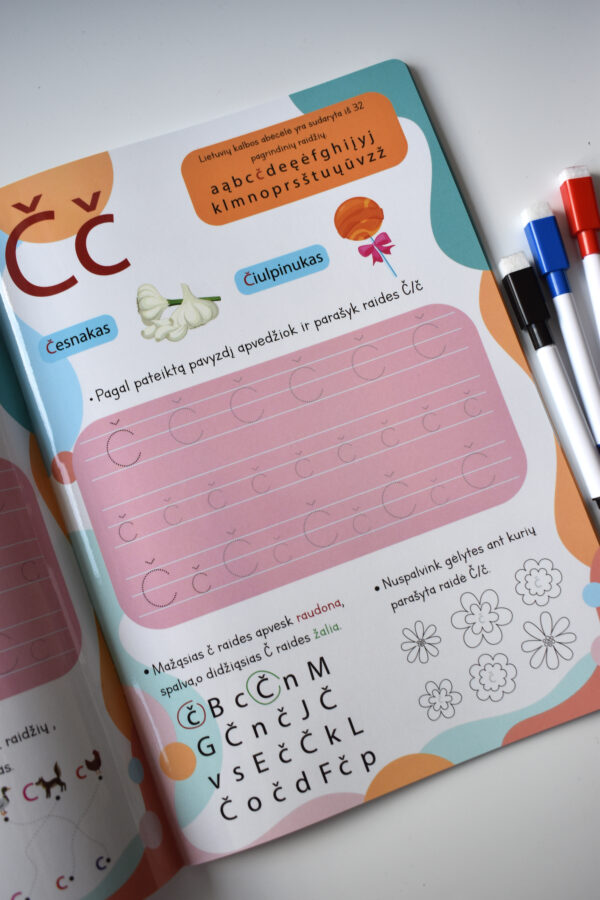 Lietuvių kalbos abėcėlė yra sudaryta iš 32
pagrindinių raidžių.
aąbcčdeęėfghiįyj
klmnoprsštuųūvzž
Čč
Česnakas
Čiulpinukas
• Pagal pateiktą pavyzdį apvedžiok ir parašyk raides Č/č
Č Č Č Č Č Č
č č č č č č č č č
Č č Č č Č č Č č Č
• Mažąsias č raides apvesk raudona,
spalva,o didžiąsias Č raides žalia.
č B c Č n M
G Č n č J Č
v s E č Č k L
Č o č d F č p
• Nuspalvink gėlytes ant kurių
parašyta raidė Č/č.
raidžių ,